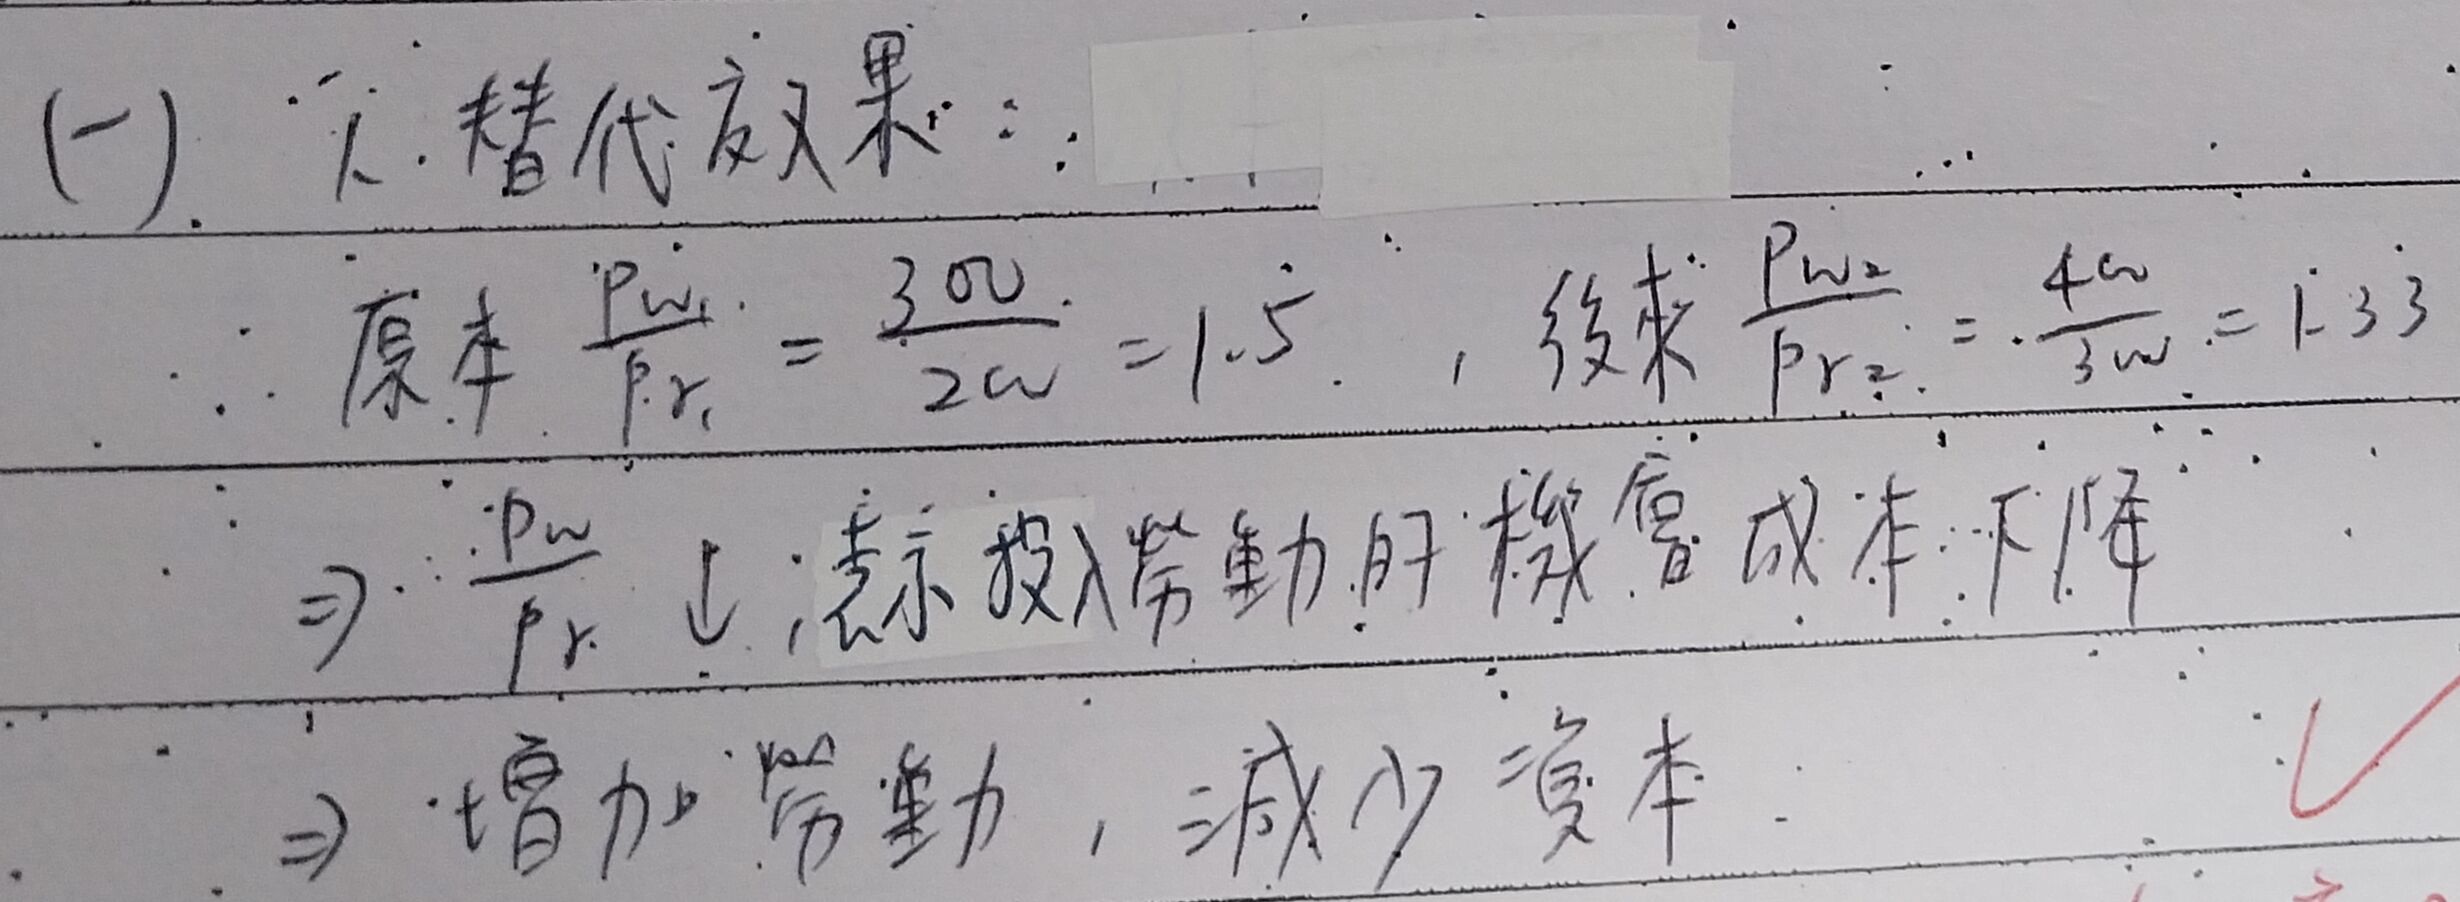 (一). 1. 替代效果:
原本 Pw₁/Pr₁ = 300/200 = 1.5, 後來 Pw₂/Pr₂ = 400/300 = 1.33
⇒ Pw/Pr ↓, 表示投入勞動的機會成本下降
⇒ 增加勞動, 減少資本